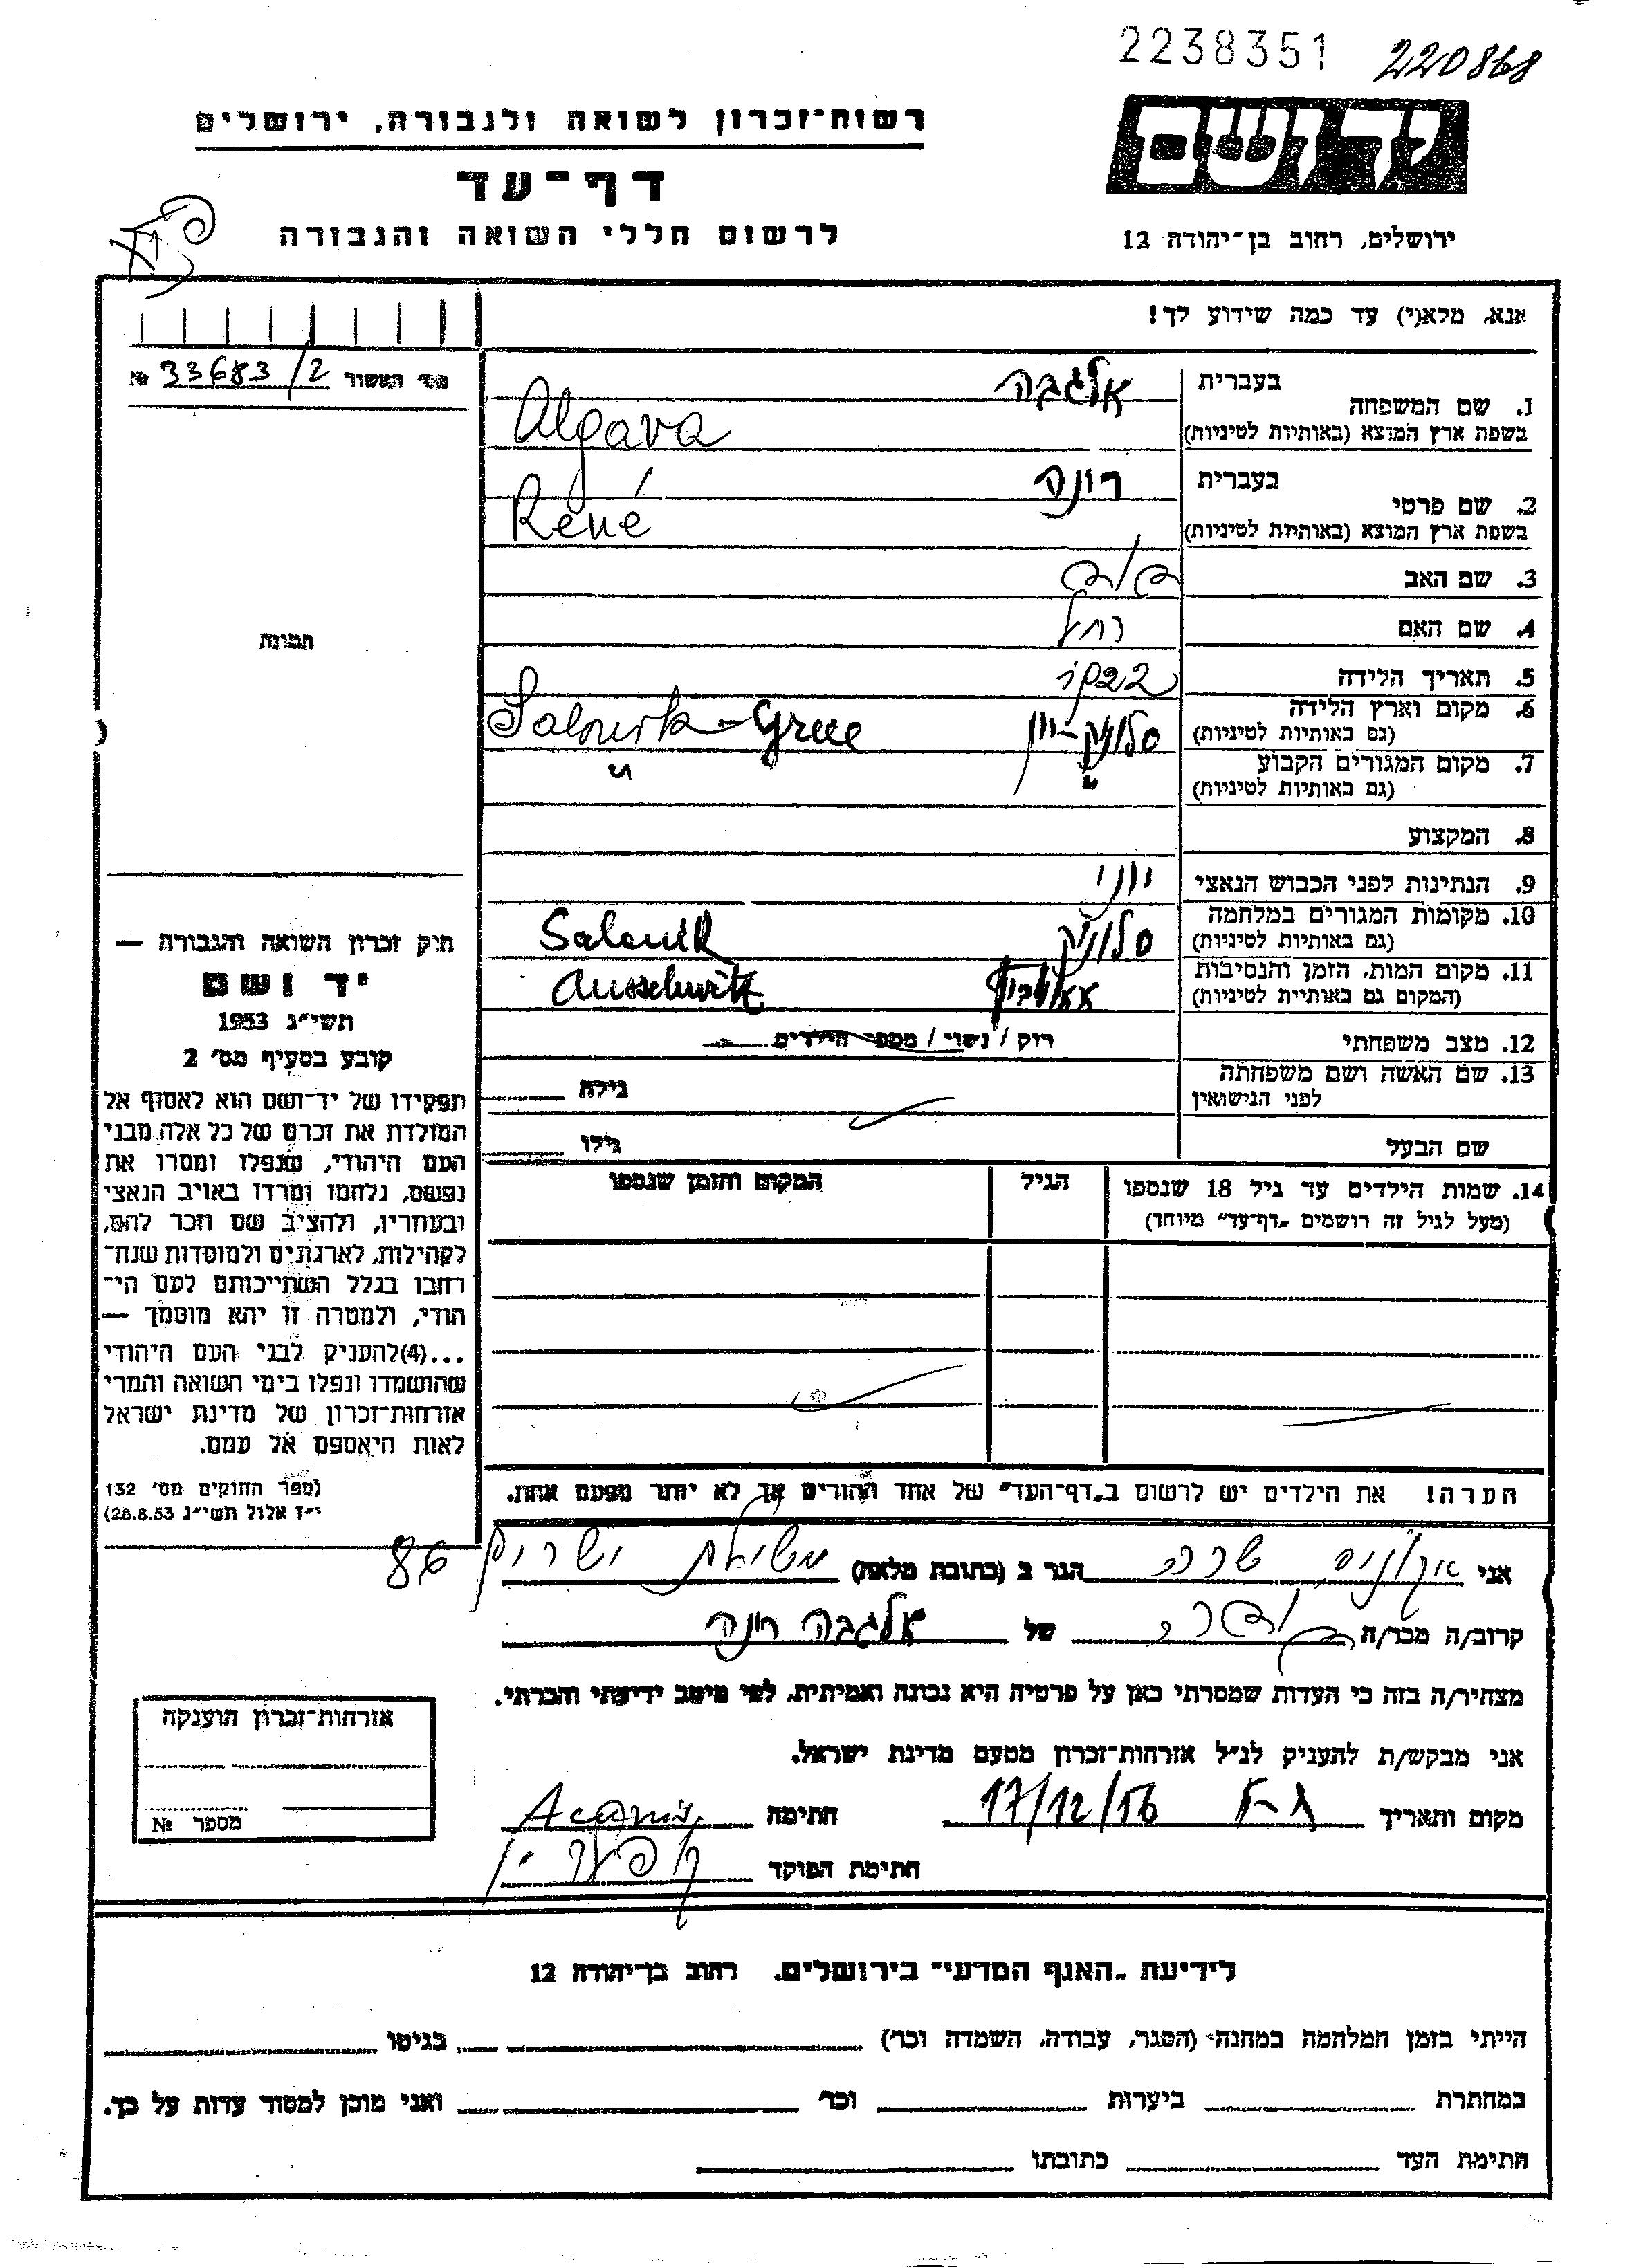 2238351 220868
רשות־זכרון לשואה ולגבורה, ירושלים
יד ושם
דף־עד
לרשום חללי השואה והגבורה
ירושלים, רחוב בן־יהודה 12
אנא, מלא(י) עד כמה שידוע לך!
מס׳ האשור № 33683/2
1. שם המשפחה
בעברית אלגבה
בשפת ארץ המוצא (באותיות לטיניות) Algava
2. שם פרטי
בעברית רונה
בשפת ארץ המוצא (באותיות לטיניות) René
3. שם האב
4. שם האם רחל
תמונה
5. תאריך הלידה
6. מקום וארץ הלידה
(גם באותיות לטיניות) סלוניק-יוון Salonik-Greee
7. מקום המגורים הקבוע
(גם באותיות לטיניות) " "
8. המקצוע
9. הנתינות לפני הכבוש הנאצי יווני
10. מקומות המגורים במלחמה
(גם באותיות לטיניות) סלוניק Salonik
11. מקום המות, הזמן והנסיבות
(המקום גם באותיית לטיניות) Ausschwitz
12. מצב משפחתי רוק / נשוי / מספר הילדים
13. שם האשה ושם משפחתה
לפני הנישואין
גילה
שם הבעל
גילו
14. שמות הילדים עד גיל 18 שנספו
(מעל לגיל זה רושמים "דף־עד" מיוחד)
הגיל
המקום והזמן שנספו
חוק זכרון השואה והגבורה —
יד ושם
תשי״ג 1953
קובע בסעיף מס׳ 2
תפקידו של יד־ושם הוא לאסוף אל
המולדת את זכרם של כל אלה מבני
העם היהודי, שנפלו ומסרו את
נפשם, נלחמו ומרדו באויב הנאצי
ובעוזריו, ולהציב שם וזכר להם,
לקהילות, לארגונים ולמוסדות שנח־
רחבו בגלל השתייכותם לעם הי־
הודי, ולמטרה זו יהא מוסמך —
...(4)להעניק לבני העם היהודי
שהושמדו ונפלו בימי השואה והמרי
אזרחות־זכרון של מדינת ישראל
לאות היאספם אל עמם.
(ספר החוקים מס׳ 132
י״ז אלול תשי״ג 28.8.53)
הערה! את הילדים יש לרשום ב"דף־העד" של אחד ההורים אך לא יותר מפעם אחת.
אני שרה הגר ב (כתובת מלאה) ישרים 86
קרוב/ה מכר/ה של אלגבה רונה
מצהיר/ה בזה כי העדות שמסרתי כאן על פרטיה היא נכונה ואמיתית, לפי מיטב ידיעתי והכרתי.
אני מבקש/ת להעניק לנ״ל אזרחות־זכרון מטעם מדינת ישראל.
מקום ותאריך ת-א 17/12/56 חתימה
חתימת הפוקד
אזרחות־זכרון הוענקה
מספר №
לידיעת "האגף המדעי" בירושלים. רחוב בן־יהודה 12
הייתי בזמן המלחמה במחנה (הסגר, עבודה, השמדה וכר׳) בגיטו
במחתרת ביערות וכר ואני מוכן למסור עדות על כך.
חתימת העד כתובתו